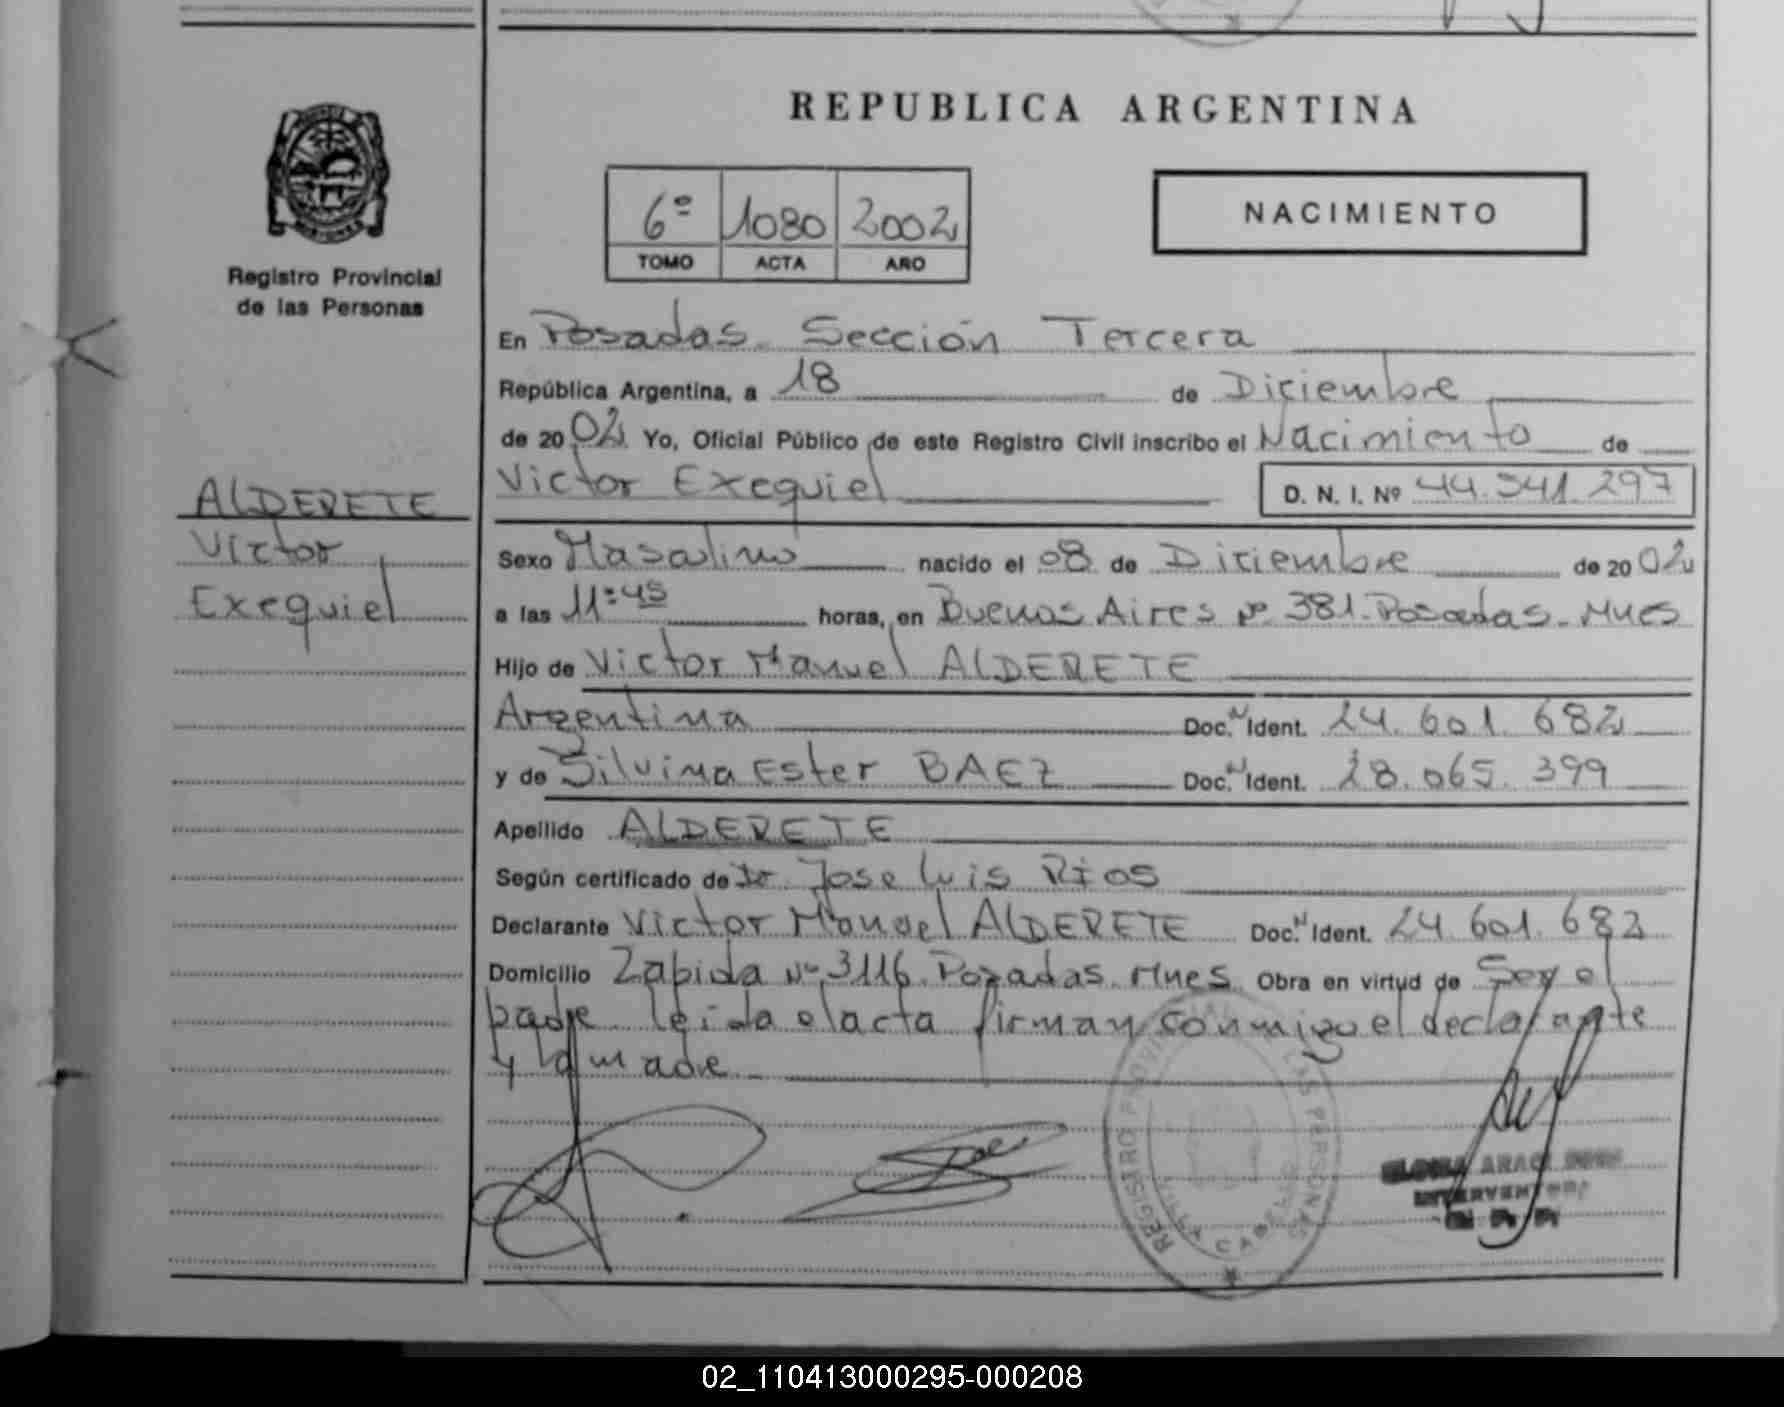 REPUBLICA ARGENTINA
6º 1080 2002
TOMO ACTA AÑO
NACIMIENTO
Registro Provincial
de las Personas
ALDERETE
Victor
Exequiel
En Posadas Sección Tercera
República Argentina, a 18 de Diciembre
de 2002 Yo, Oficial Público de este Registro Civil inscribo el Nacimiento de
Victor Exequiel D. N. I. Nº 44.541.297
Sexo Masculino nacido el 08 de Diciembre de 2002
a las 11:45 horas, en Buenos Aires Nº 381. Posadas. Mnes
Hijo de Victor Manuel ALDERETE
Argentina Doc.N Ident. 24.601.682
y de Silvina Ester BAEZ Doc.N Ident. 28.065.399
Apellido ALDERETE
Según certificado de Dr. Jose Luis Rios
Declarante Victor Manuel ALDERETE Doc.N Ident. 24.601.682
Domicilio Zapiola Nº 3116. Posadas. Mnes. Obra en virtud de Ser el
padre leida el acta firman conmigo el declarante
y la madre
REGISTRO PROVINCIAL DE LAS PERSONAS
INTERVENTORA
02_110413000295-000208